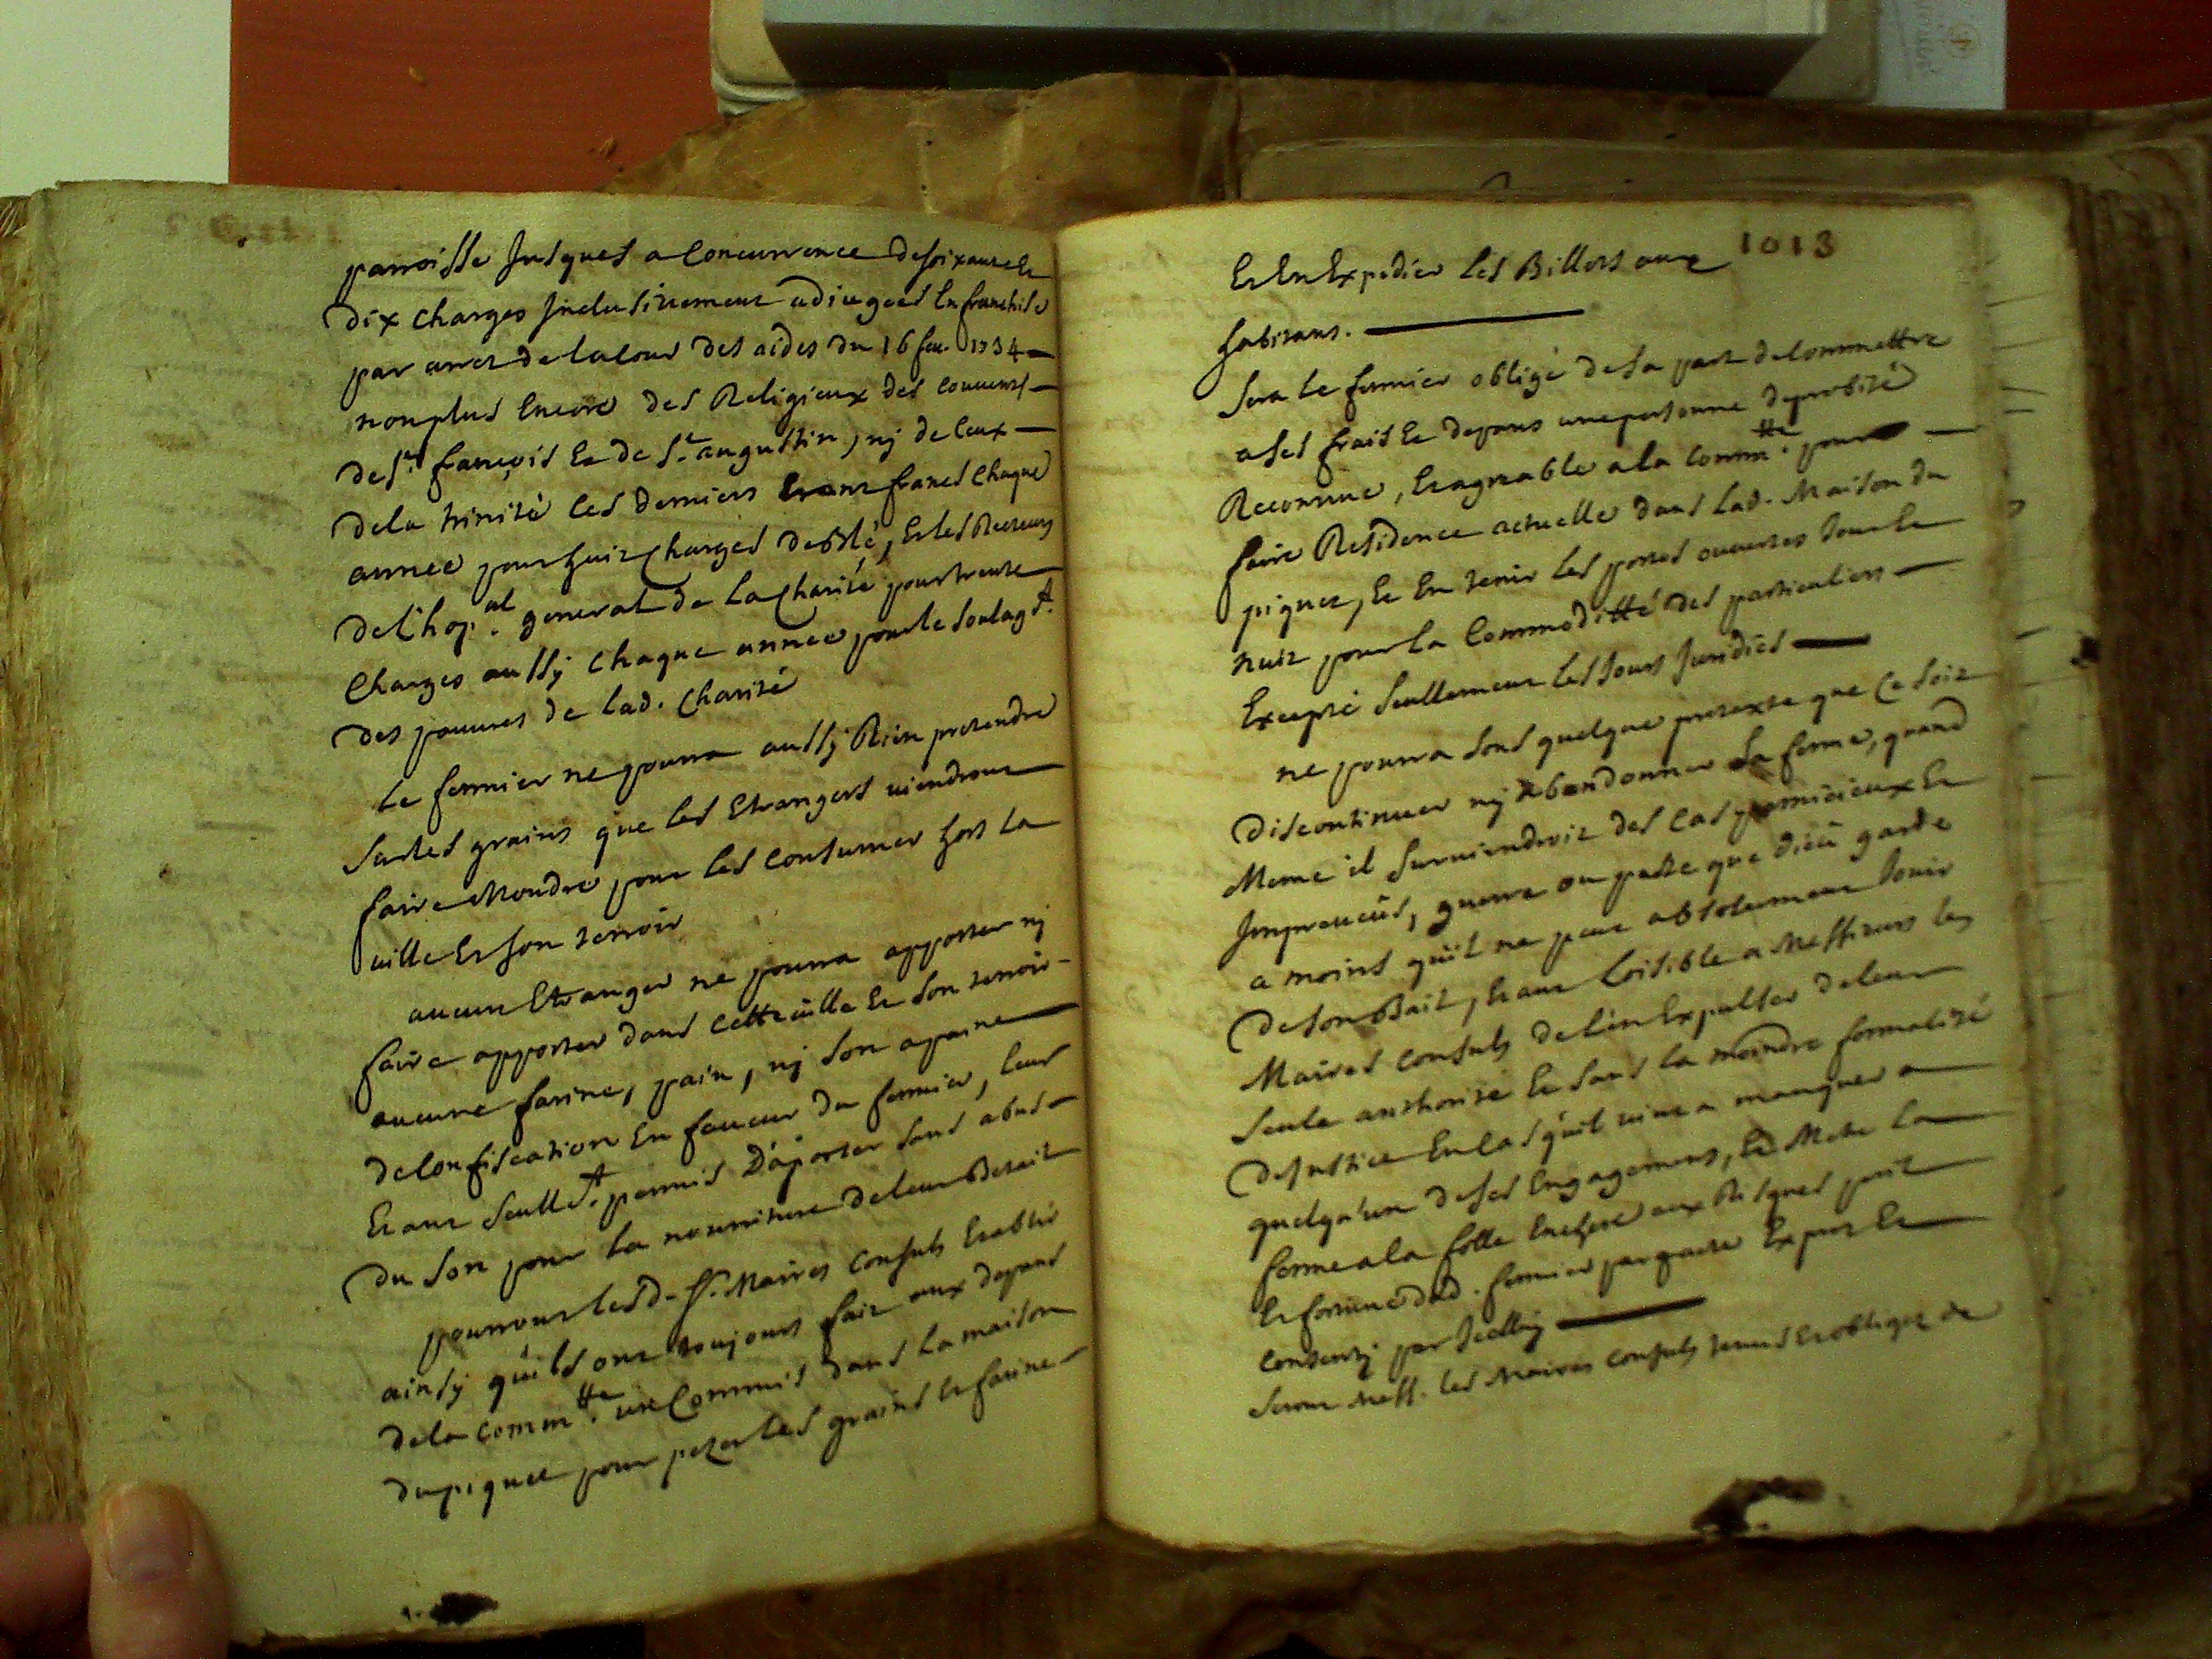 parroisse Jusques a Concurrence desoixante Et
dix charges Jnclusivement adjugees En franchise
par arret de la Cour des aides du 16 feu. 1734
non plus Encore des Religieux des couuents
de St. françois Et de St. augustin, nj de Ceux
de la trinité ces derniers Etant francs Chaque
annee pour huit charges de blé, Et les Recteurs
de L'hop.al general de La Charité pour trente
Charges aussy Chaque annee pour le soulagt.
des pauures de Lad. Charité
Le fermier ne pourra aussy Rien pretendre
sur les grains que les Etrangers viendront
faire Moudre pour les Consumer hors La
ville Et son terroir
aucun Etranger ne pourra apporter nj
faire apporter dans cette ville Et son terroir
aucune farine, pain, nj son a paine
de Confiscation En faueur du fermier, leur
Etant seullt. permis D'aporter sans abus
du son pour La nourriture de leur Betail
pourront lesd. srs. Maires Consuls Etablir
ainsy qu'ils ont toujours fait aux depans
de la Comm.tte un Commis dans La maison
du piquet pour pezer Les grains Et farine
1013
Et En Expedier Les Billets aux
habitans.
Sera Le fermier obligé de sa part de Commettre
a ses frais Et depans une personne de probité
Reconnue, Et agreable a la Comm.tte pour
faire Residence actuelle dans Lad. Maison du
piquet, Et En tenir Les portes ouuertes Jour Et
nuit pour La Commoditté des particuliers
Excepté seullement Les Jours Juridics
ne pourra sous quelque pretexte que Ce soit
discontinuer nj abandonner La ferme, quand
Meme il suruiendroit des Cas pernicieux Et
Jmpreueus, guerre ou peste que dieu garde
a moins qu'il ne peut absolument Jouir
de son Bail, Etant Loisible a Messieurs les
Maires Consuls de L'en Expulser de leur
seule authorité Et sans La moindre formalité
de Justice En Cas qu'il vint a manquer a
quelqu'un de ses Engagemens, Et Metre La
ferme a la folle Enchere aux Risques peril
Et fortune dud. fermier par pacte Expres Et
Consenty par Jcelluy
seront Mess. Les Maires Consuls tenus Et obligez de